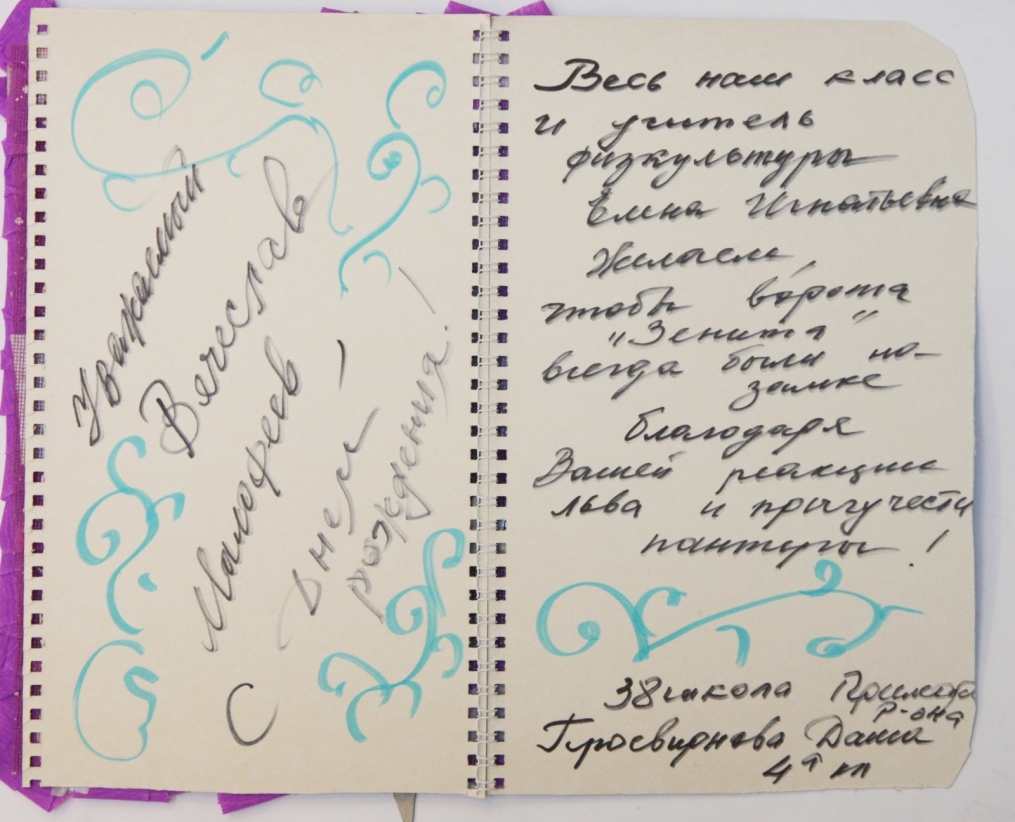 Уважаемый
Вячеслав
Малафеев
С днем
рождения!
Весь наш класс
и учитель
физкультуры
Елена Игнатьевна
Желаем,
чтобы ворота
"Зенита"
всегда были на-
замке
благодаря
Вашей реакции
льва и прыгучести
пантеры!
38 школа Примор
р-она
Просвирнова Даша
4 кл